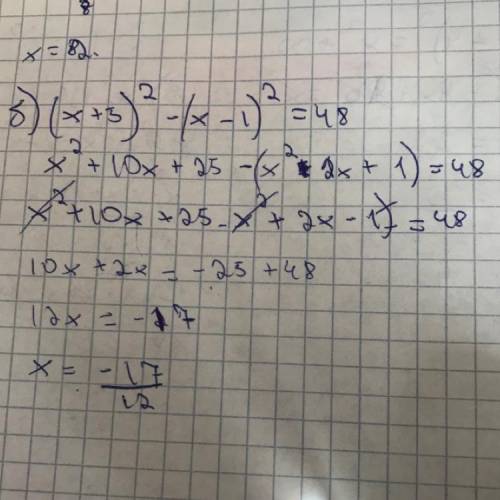 8
x = 82.
б) (x+5)² - (x-1)² = 48
x² + 10x + 25 - (x² - 2x + 1) = 48
x² + 10x + 25 - x² + 2x - 1 = 48
10x + 2x = -25 + 48
12x = -17
x = -17/12